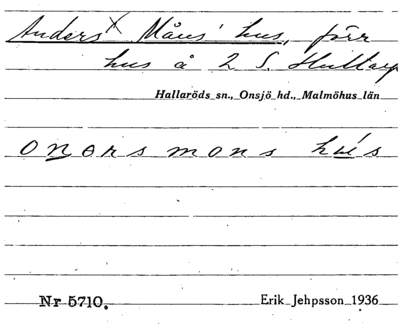 Anders x Måns' hus, förr
hus å 2 S. Hultarp
Hallaröds sn., Onsjö hd., Malmöhus län
onərs mons hús
Nr 5710.
Erik Jehpsson 1936